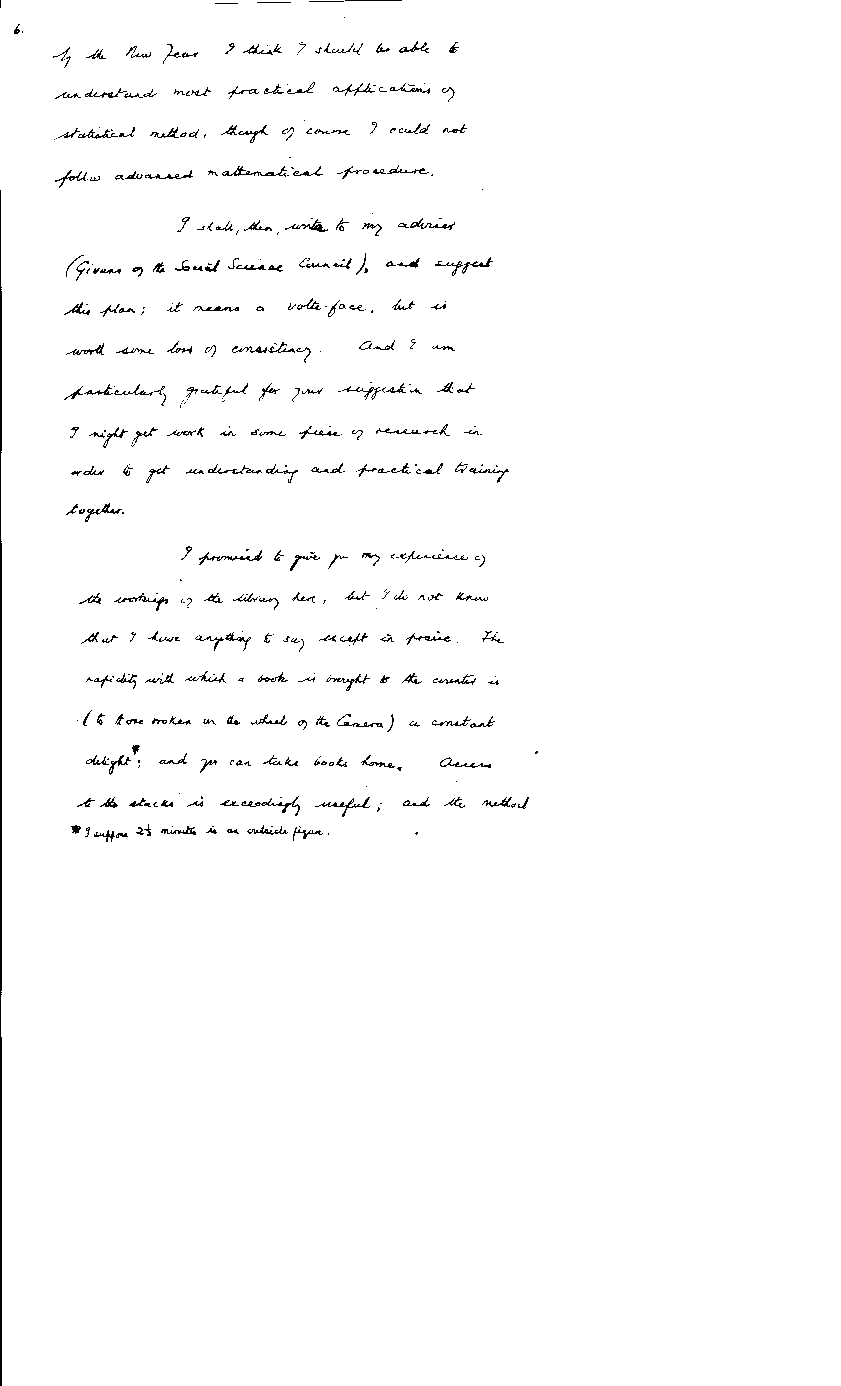 6.
By the New Year I think I should be able to
understand most practical applications of
statistical method, though of course I could not
follow advanced mathematical procedure.
I shall, then, write to my adviser
(Givens of the Social Science Council), and suggest
this plan; it means a volte-face, but is
worth some loss of consistency. And I am
particularly grateful for your suggestion that
I might get work in some piece of research in
order to get understanding and practical training
together.
I promised to give you my experience of
the workings of the library here, but I do not know
that I have anything to say except in praise. The
rapidity with which a book is brought to the counter is
(to those broken on the wheel of the Camera) a constant
delight*; and you can take books home. Access
to the stacks is exceedingly useful; and the method
* I suppose 2½ minutes is an outside figure.